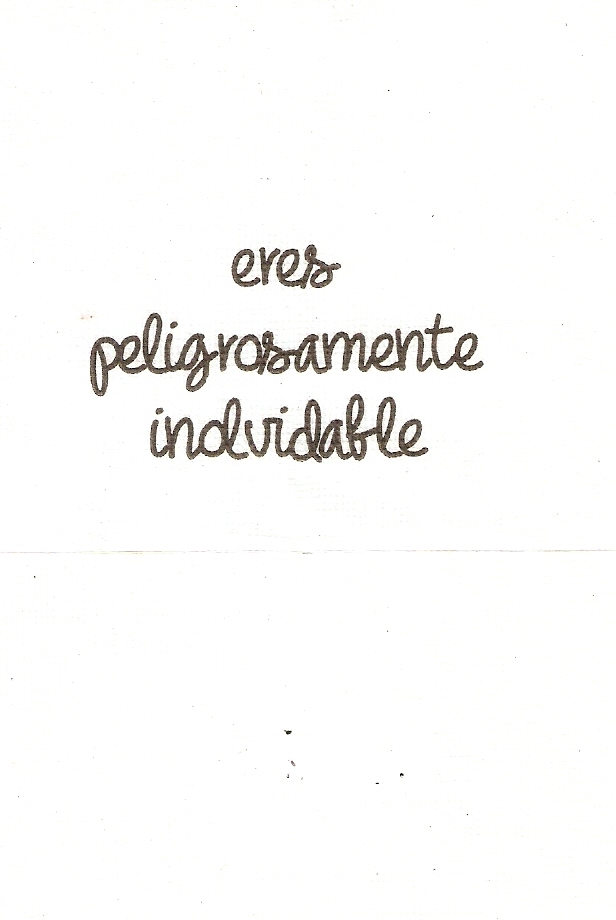 eres
peligrosamente
inolvidable